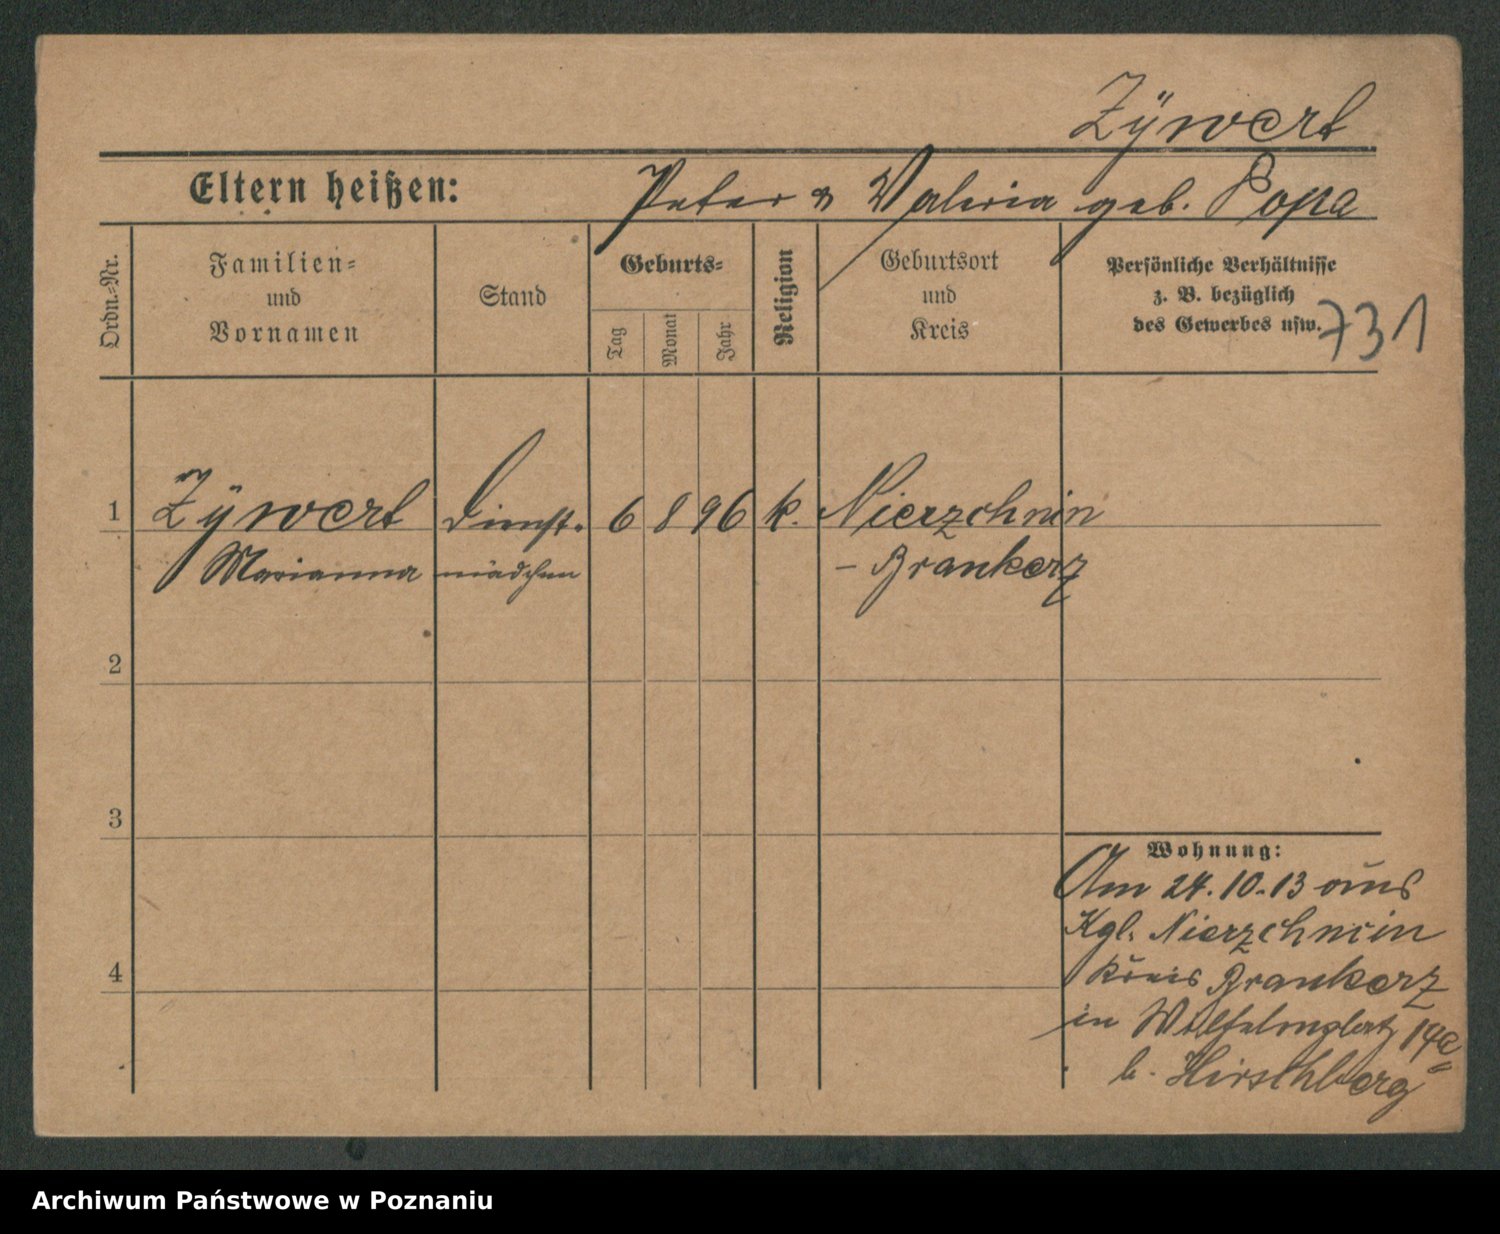 Zÿwert
Eltern heißen: Peter & Valeria geb. Popa
Ordn.-Nr.
Familien-
und
Vornamen
Stand
Geburts-
Tag
Monat
Jahr
Religion
Geburtsort
und
Kreis
Persönliche Verhältnisse
z. B. bezüglich
des Gewerbes usw.
731
1 Zÿwert Dienst- 6 8 96 k. Nierzchnin
Marianna mädchen – Brankerz
2
3
4
Wohnung:
Am 24.10.13 aus
Kgl. Nierzchnin
Kreis Brankerz
in Wilhelmplatz 14a
b. Hirschberg
Archiwum Państwowe w Poznaniu